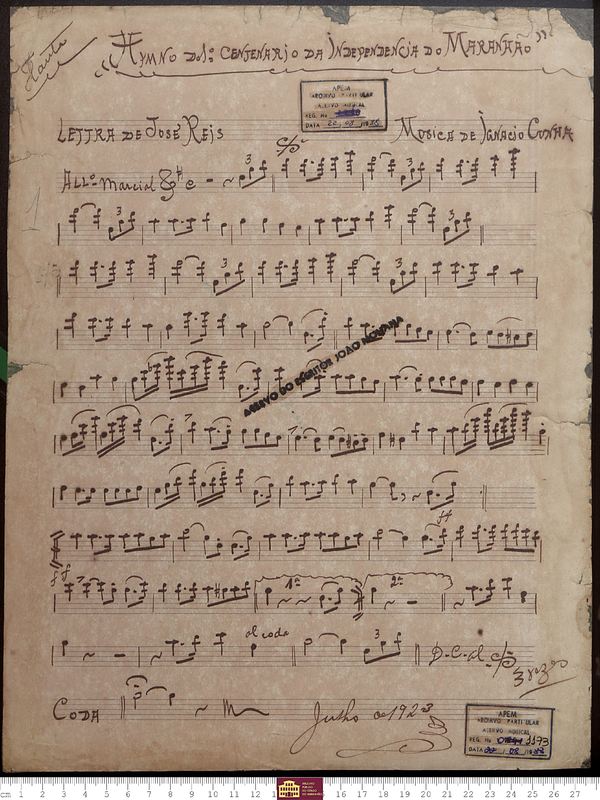 Flauta
"Hymno do 1º Centenario da Independencia do Maranhão"
APEM
ARQUIVO PARTICULAR
ACERVO MUSICAL
REG. No
DATA
Lettra de José Reis
Musica de Ignacio Cunha
All.º Marcial
3
3
3
3
3
3
3
ACERVO DO ESCRITOR JOÃO MOHANA
ff
ff
1ª
2ª
al coda
3
D-C-al
3 vezes
Coda
Julho de 1923
APEM
ARQUIVO PARTICULAR
ACERVO MUSICAL
REG. No 1193
DATA
cm 1 2 3 4 5 6 7 8 9 10 11 12 13 14 15 16 17 18 19 20 21 22 23 24 25 26 27